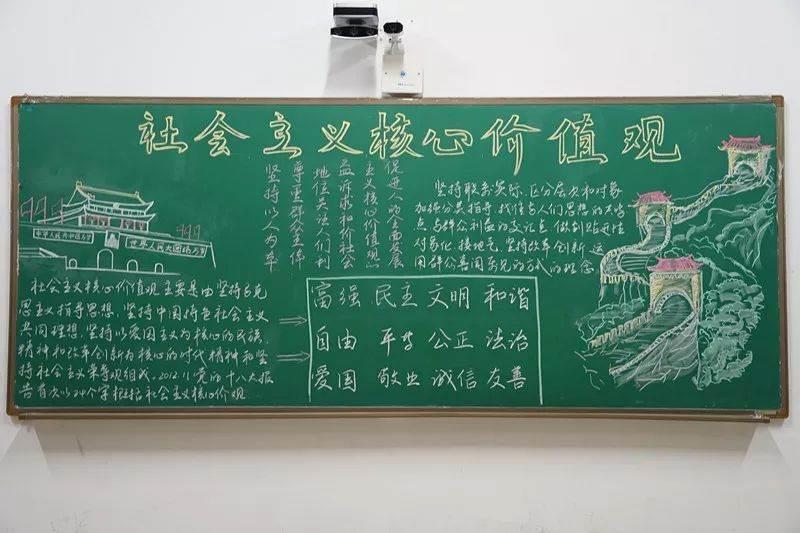 社会主义核心价值观
坚持以人为本
尊重群众主体
地位关注人们利
益诉求和价社会
主义核心价值观
促进人的全面发展
坚持联系实际、区分层次和对象
加强分类指导、找准与人们思想的共鸣
点与群众利益的交汇点 做到贴近性
对象化、接地气、坚持改革创新、运
用群众喜闻乐见的方式的理念
中华人民共和国万岁
世界人民大团结万岁
社会主义核心价值观主要是由坚持马克
思主义指导思想、坚持中国特色社会主义
共同理想、坚持以爱国主义为核心的民族
精神和改革创新为核心的时代精神和坚
持社会主义荣辱观组成。2012.11党的十八大报
告首次以24个字概括社会主义核心价观
富强 民主 文明 和谐
自由 平等 公正 法治
爱国 敬业 诚信 友善